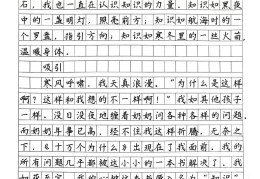 石，我也一直在认识知识的力量。知识如黑夜
中的一盏明灯，照亮前方；知识如航海时的一
个罗盘，指引方向，知识如寒冬里的一丝火苗，
温暖身体。
吸引
寒风呼啸，我天真浪漫。“为什么是这样
啊？这样和我想的不一样啊！”我如其他孩子
一样。没日没夜地缠着奶奶问各种各样的问题
而奶奶年事已高，经不住我这样折腾。无奈之
下，《十万个为什么》出现在了我的面前，我的
所有问题几乎都被这小小的一本书解决了。我